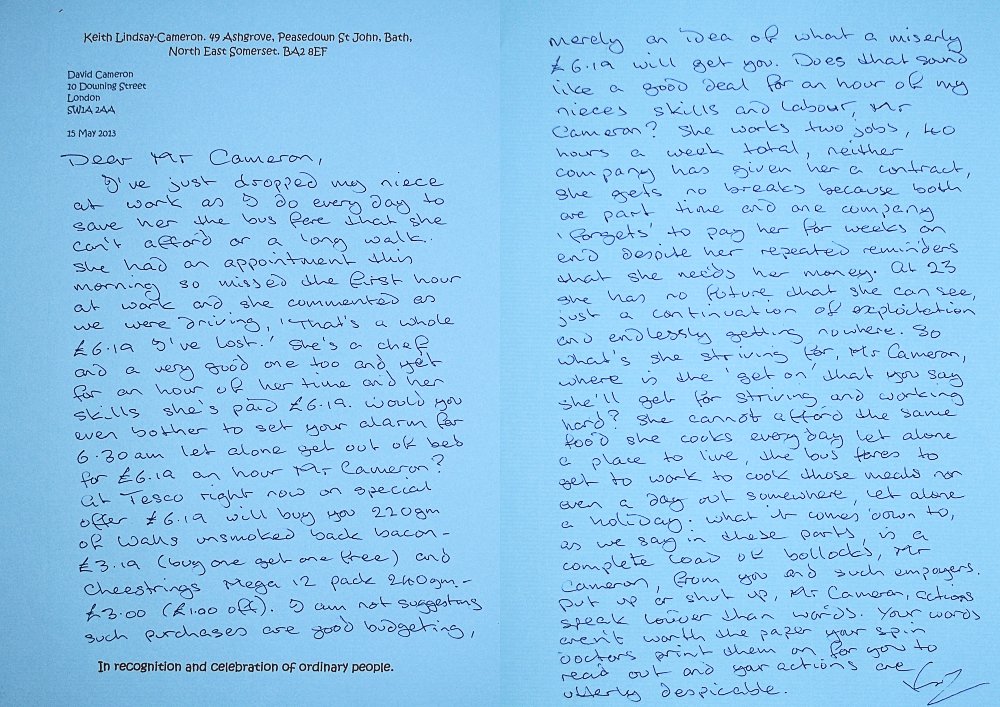 Keith Lindsay-Cameron. 49 Ashgrove, Peasedown St John, Bath,
North East Somerset. BA2 8EF
David Cameron
10 Downing Street
London
SW1A 2AA
15 May 2013
Dear Mr Cameron,
I've just dropped my niece
at work as I do every day to
save her the bus fare that she
can't afford or a long walk.
She had an appointment this
morning so missed the first hour
at work and she commented as
we were driving, 'That's a whole
£6.19 I've lost.' She's a chef
and a very good one too and yet
for an hour of her time and her
skills she's paid £6.19. Would you
even bother to set your alarm for
6.30am let alone get out of bed
for £6.19 an hour Mr Cameron?
At Tesco right now on special
offer £6.19 will buy you 220gm
of Walls unsmoked back bacon -
£3.19 (buy one get one free) and
Cheestrings Mega 12 pack 240gm. -
£3.00 (£1.00 off). I am not suggesting
such purchases are good budgeting,
In recognition and celebration of ordinary people.
merely an idea of what a miserly
£6.19 will get you. Does that sound
like a good deal for an hour of my
nieces skills and labour, Mr
Cameron? She works two jobs, 40
hours a week total, neither
company has given her a contract,
she gets no breaks because both
are part time and one company
'forgets' to pay her for weeks on
end despite her repeated reminders
that she needs her money. At 23
she has no future that she can see,
just a continuation of exploitation
and endlessly getting nowhere. So
what's she striving for, Mr Cameron,
where is the 'get on' that you say
she'll get for striving and working
hard? She cannot afford the same
food she cooks everyday let alone
a place to live, the bus fares to
get to work to cook those meals nor
even a day out somewhere, let alone
a holiday. What it comes down to,
as we say in these parts, is a
complete load of bollocks, Mr
Cameron, from you and such employers.
Put up or shut up, Mr Cameron, actions
speak louder than words. Your words
aren't worth the paper your spin
doctors print them on for you to
read out and your actions are
utterly despicable.